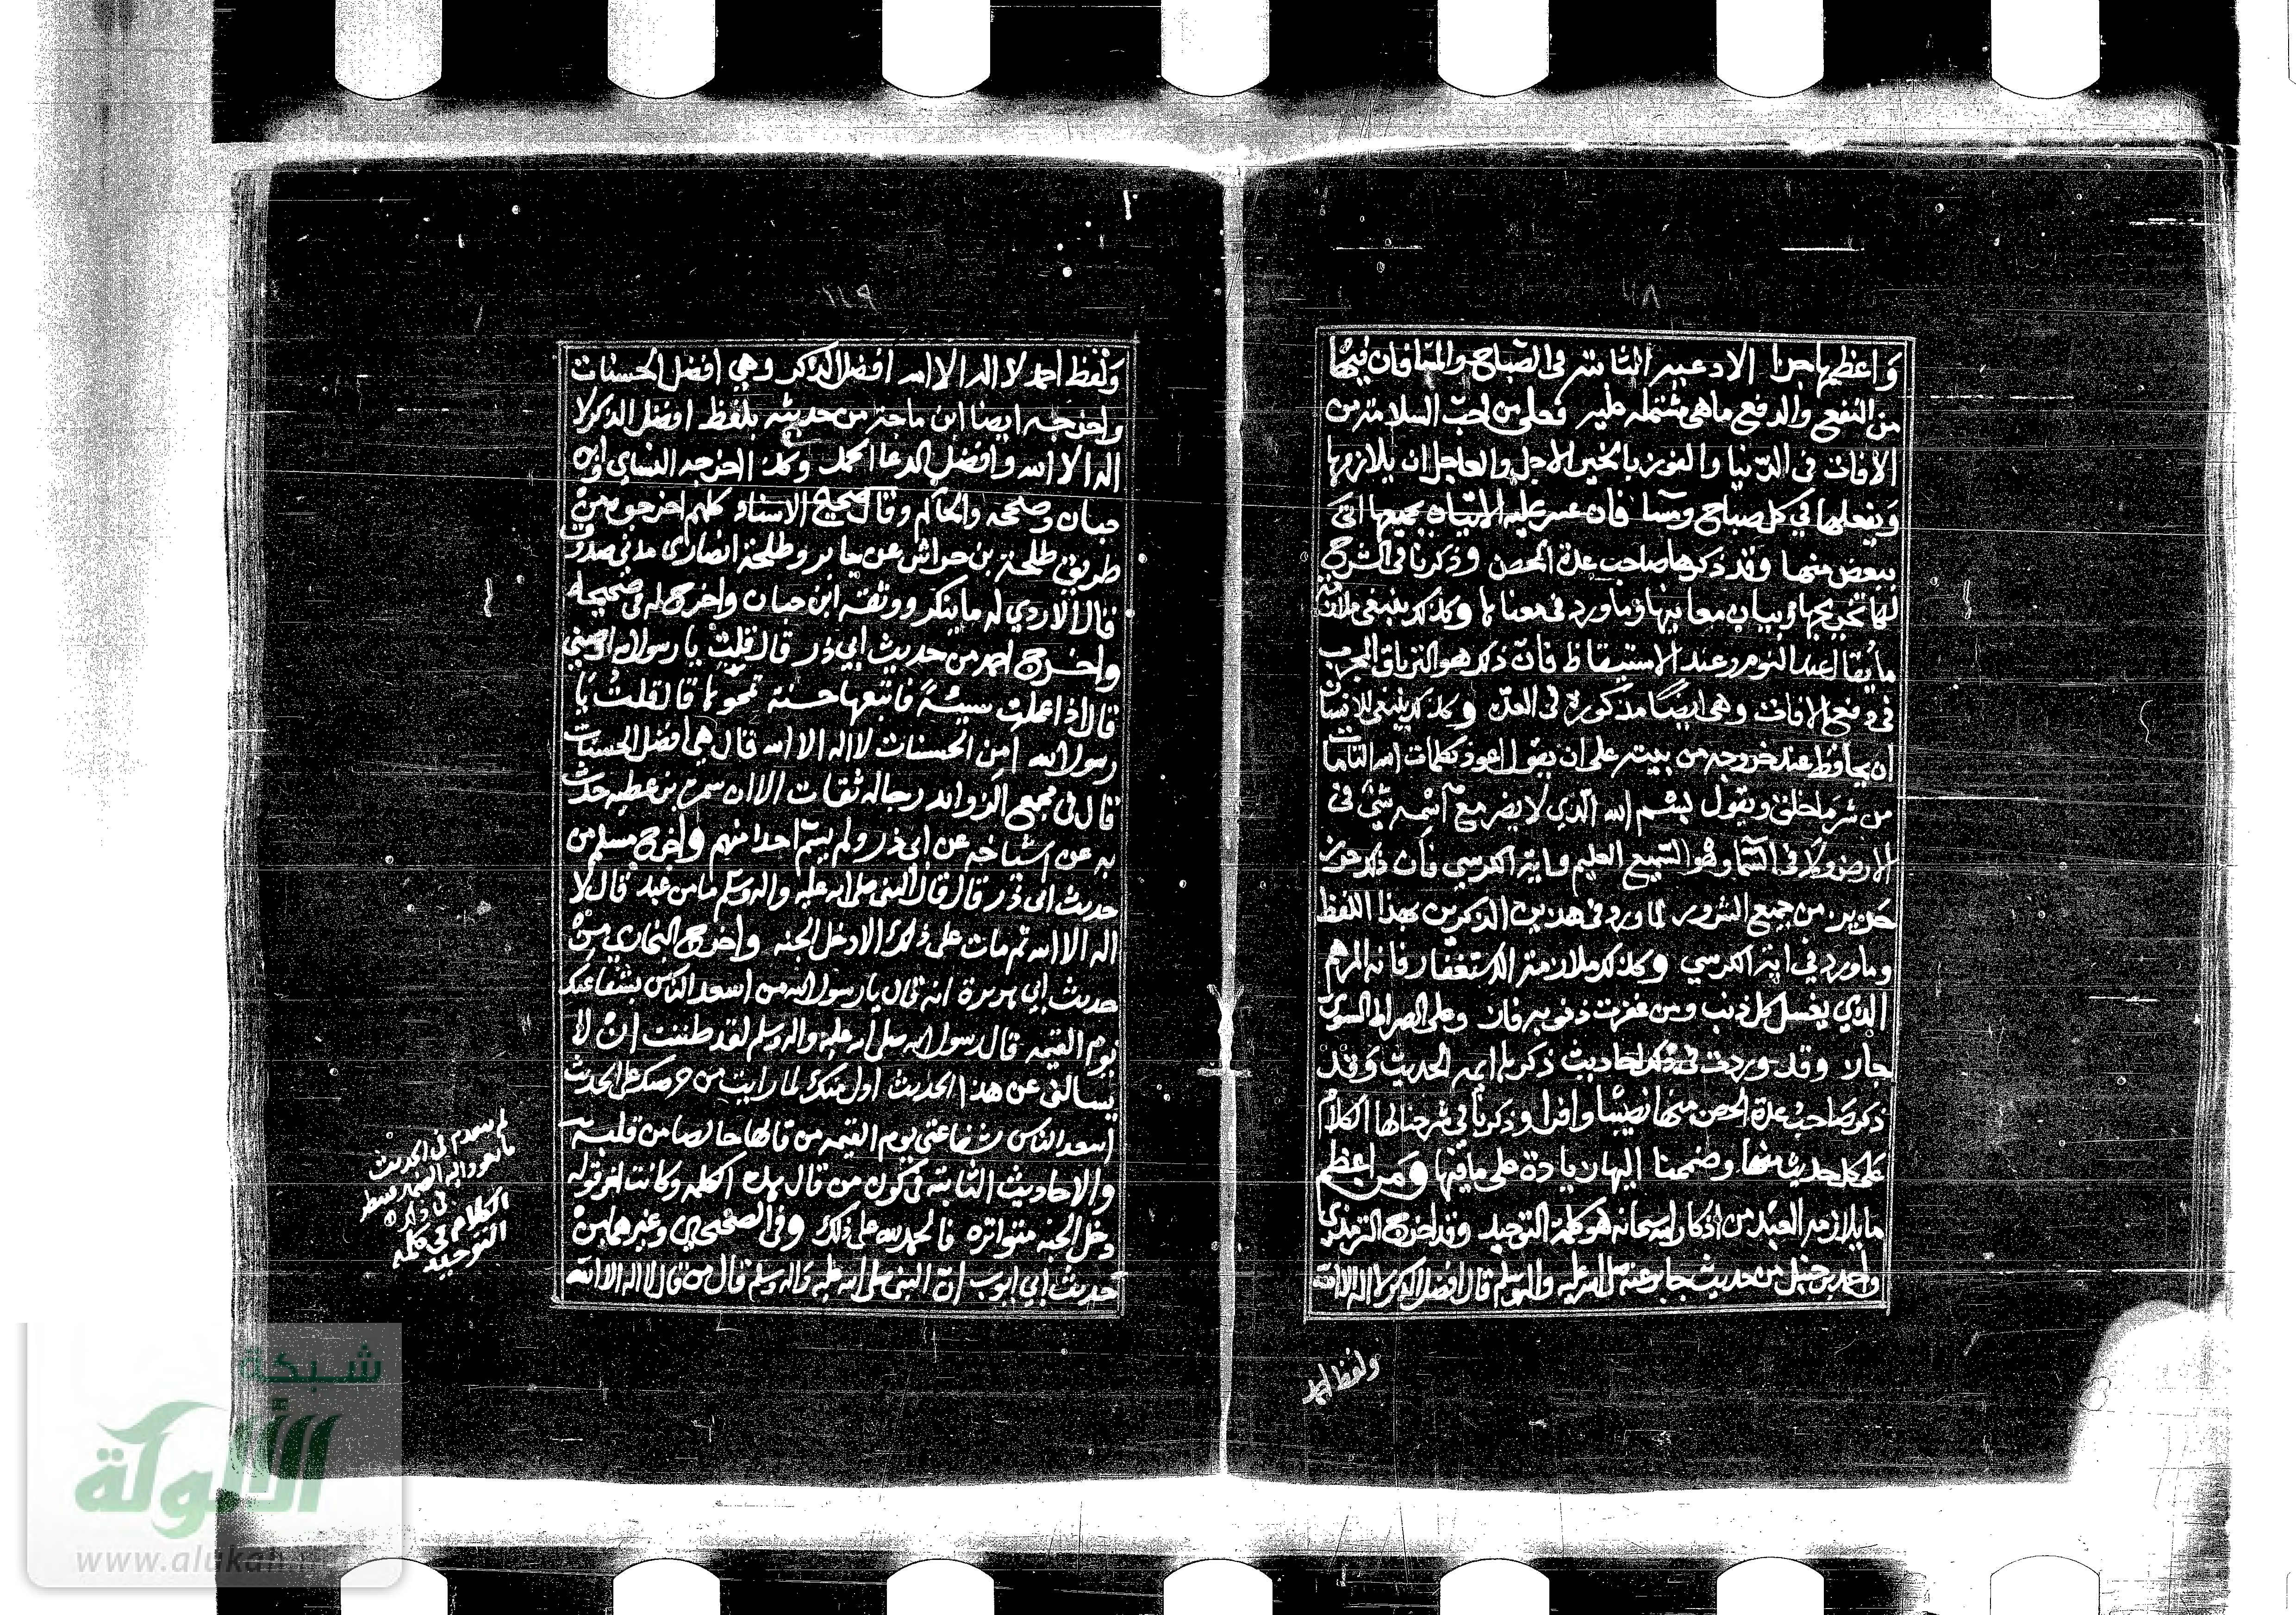 ١٤٨
واعظمها اجرا الادعية الثابتة فى الصباح والمسا فان فيها
من النفع والدفع ما هى مشتملة عليه فعلى من احب السلامة من
الافات فى الدنيا والفوز بالخير الاجل والعاجل ان يلازمها
ويفعلها في كل صباح ومسا فان عسر عليه الاتيان بجميعها اتى
ببعض منها وقد ذكرها صاحب عدة الحصن وذكرنا فى الشرح
لها تخريجها وبيان معانيها وما ورد فى معناها وكذلك ينبغى ملازمة
ما يقال عند النوم وعند الاستيقاظ فان ذلك هو الترياق المجرب
فى دفع الافات وهى ايضا مذكورة فى العدة وكذلك ينبغى للانسان
ان يحافظ عند خروجه من بيته على ان يقول اعوذ بكلمات الله التامات
من شر ما خلق ويقول بسم الله الذي لا يضر مع اسمه شئ فى
الارض ولا فى السما وهو السميع العليم واية الكرسي فان ذلك حرز
حريز من جميع الشرور لما ورد فى هذين الذكرين بهذا اللفظ
وما ورد في اية الكرسي وكذلك ملازمة الاستغفار فانه المرهم
الذي يغسل كل ذنب ومن غفرت ذنوبه فاز وعلى الصراط السوى
جاز وقد وردت فى ذلك احاديث ذكرها ايمة الحديث وقد
ذكر صاحب عدة الحصن منها نصيبا وافرا وذكرنا في شرحنا لها الكلام
على كل حديث منها وضممنا اليها زيادة على ما فيها ومن اعظم
ما يلازمه العبد من اذكار الله سبحانه هو كلمة التوحيد وقد اخرج الترمذي
واحمد بن حنبل من حديث جابر عنه صلى الله عليه واله وسلم قال افضل الذكر لا اله الا الله
ولفظ احمد
١٤٩
ولفظ احمد لا اله الا الله افضل الذكر وهي افضل الحسنات
واخرجه ايضا ابن ماجة من حديثه بلفظ افضل الذكر لا
اله الا الله وافضل الدعا الحمد وكذا اخرجه النساي وابن
حبان وصححه والحاكم وقال صحيح الاسناد كلهم اخرجوه من
طريق طلحة بن خراش عن جابر وطلحة انصارى مدني صدوق
قال الازدي له ما ينكر ووثقه ابن حبان واخرج له فى صحيحه
واخرج احمد من حديث ابي ذر قال قلت يا رسول الله اوصني
قال اذا عملت سيئة فاتبعها حسنة تمحوها قال قلت يا
رسول الله امن الحسنات لا اله الا الله قال هى افضل الحسنات
قال فى مجمع الزوائد رجاله ثقات الا ان شمر بن عطيه حدث
به عن اشياخه عن ابي ذر ولم يسم احدا منهم واخرج مسلم من
حديث ابى ذر قال قال النبى صلى الله عليه واله وسلم ما من عبد قال لا
اله الا الله ثم مات على ذلك الا دخل الجنه واخرج البخاري من
حديث ابي هريرة انه قال يا رسول الله من اسعد الناس بشفاعتك
يوم القيمه قال رسول الله صلى الله عليه واله وسلم لقد ظننت ان لا
يسالنى عن هذا الحديث اول منك لما رايت من حرصك على الحديث
اسعد الناس بشفاعتى يوم القيمه من قالها خالصا من قلبه
والاحاديث الثابته فى كون من قال هذه الكلمه وكانت اخر قوله
دخل الجنه متواتره فالحمد لله على ذلك وفى الصحيحين وغيرهما من
حديث ابي ايوب ان النبى صلى الله عليه واله وسلم قال من قال لا اله الا الله
لم يتقدم فى الحديث
ما يعود اليه الضمير
الكلام في كلمة
التوحيد
شبكة
الألوكة
www.alukah.